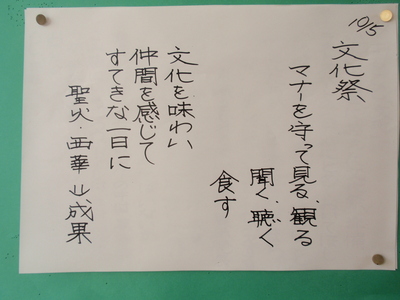 10/5
文化祭
マナーを守って見る、観る
聞く、聴く
食す
文化を味わい
仲間を感じて
すてきな一日に
聖火・西華 山成果